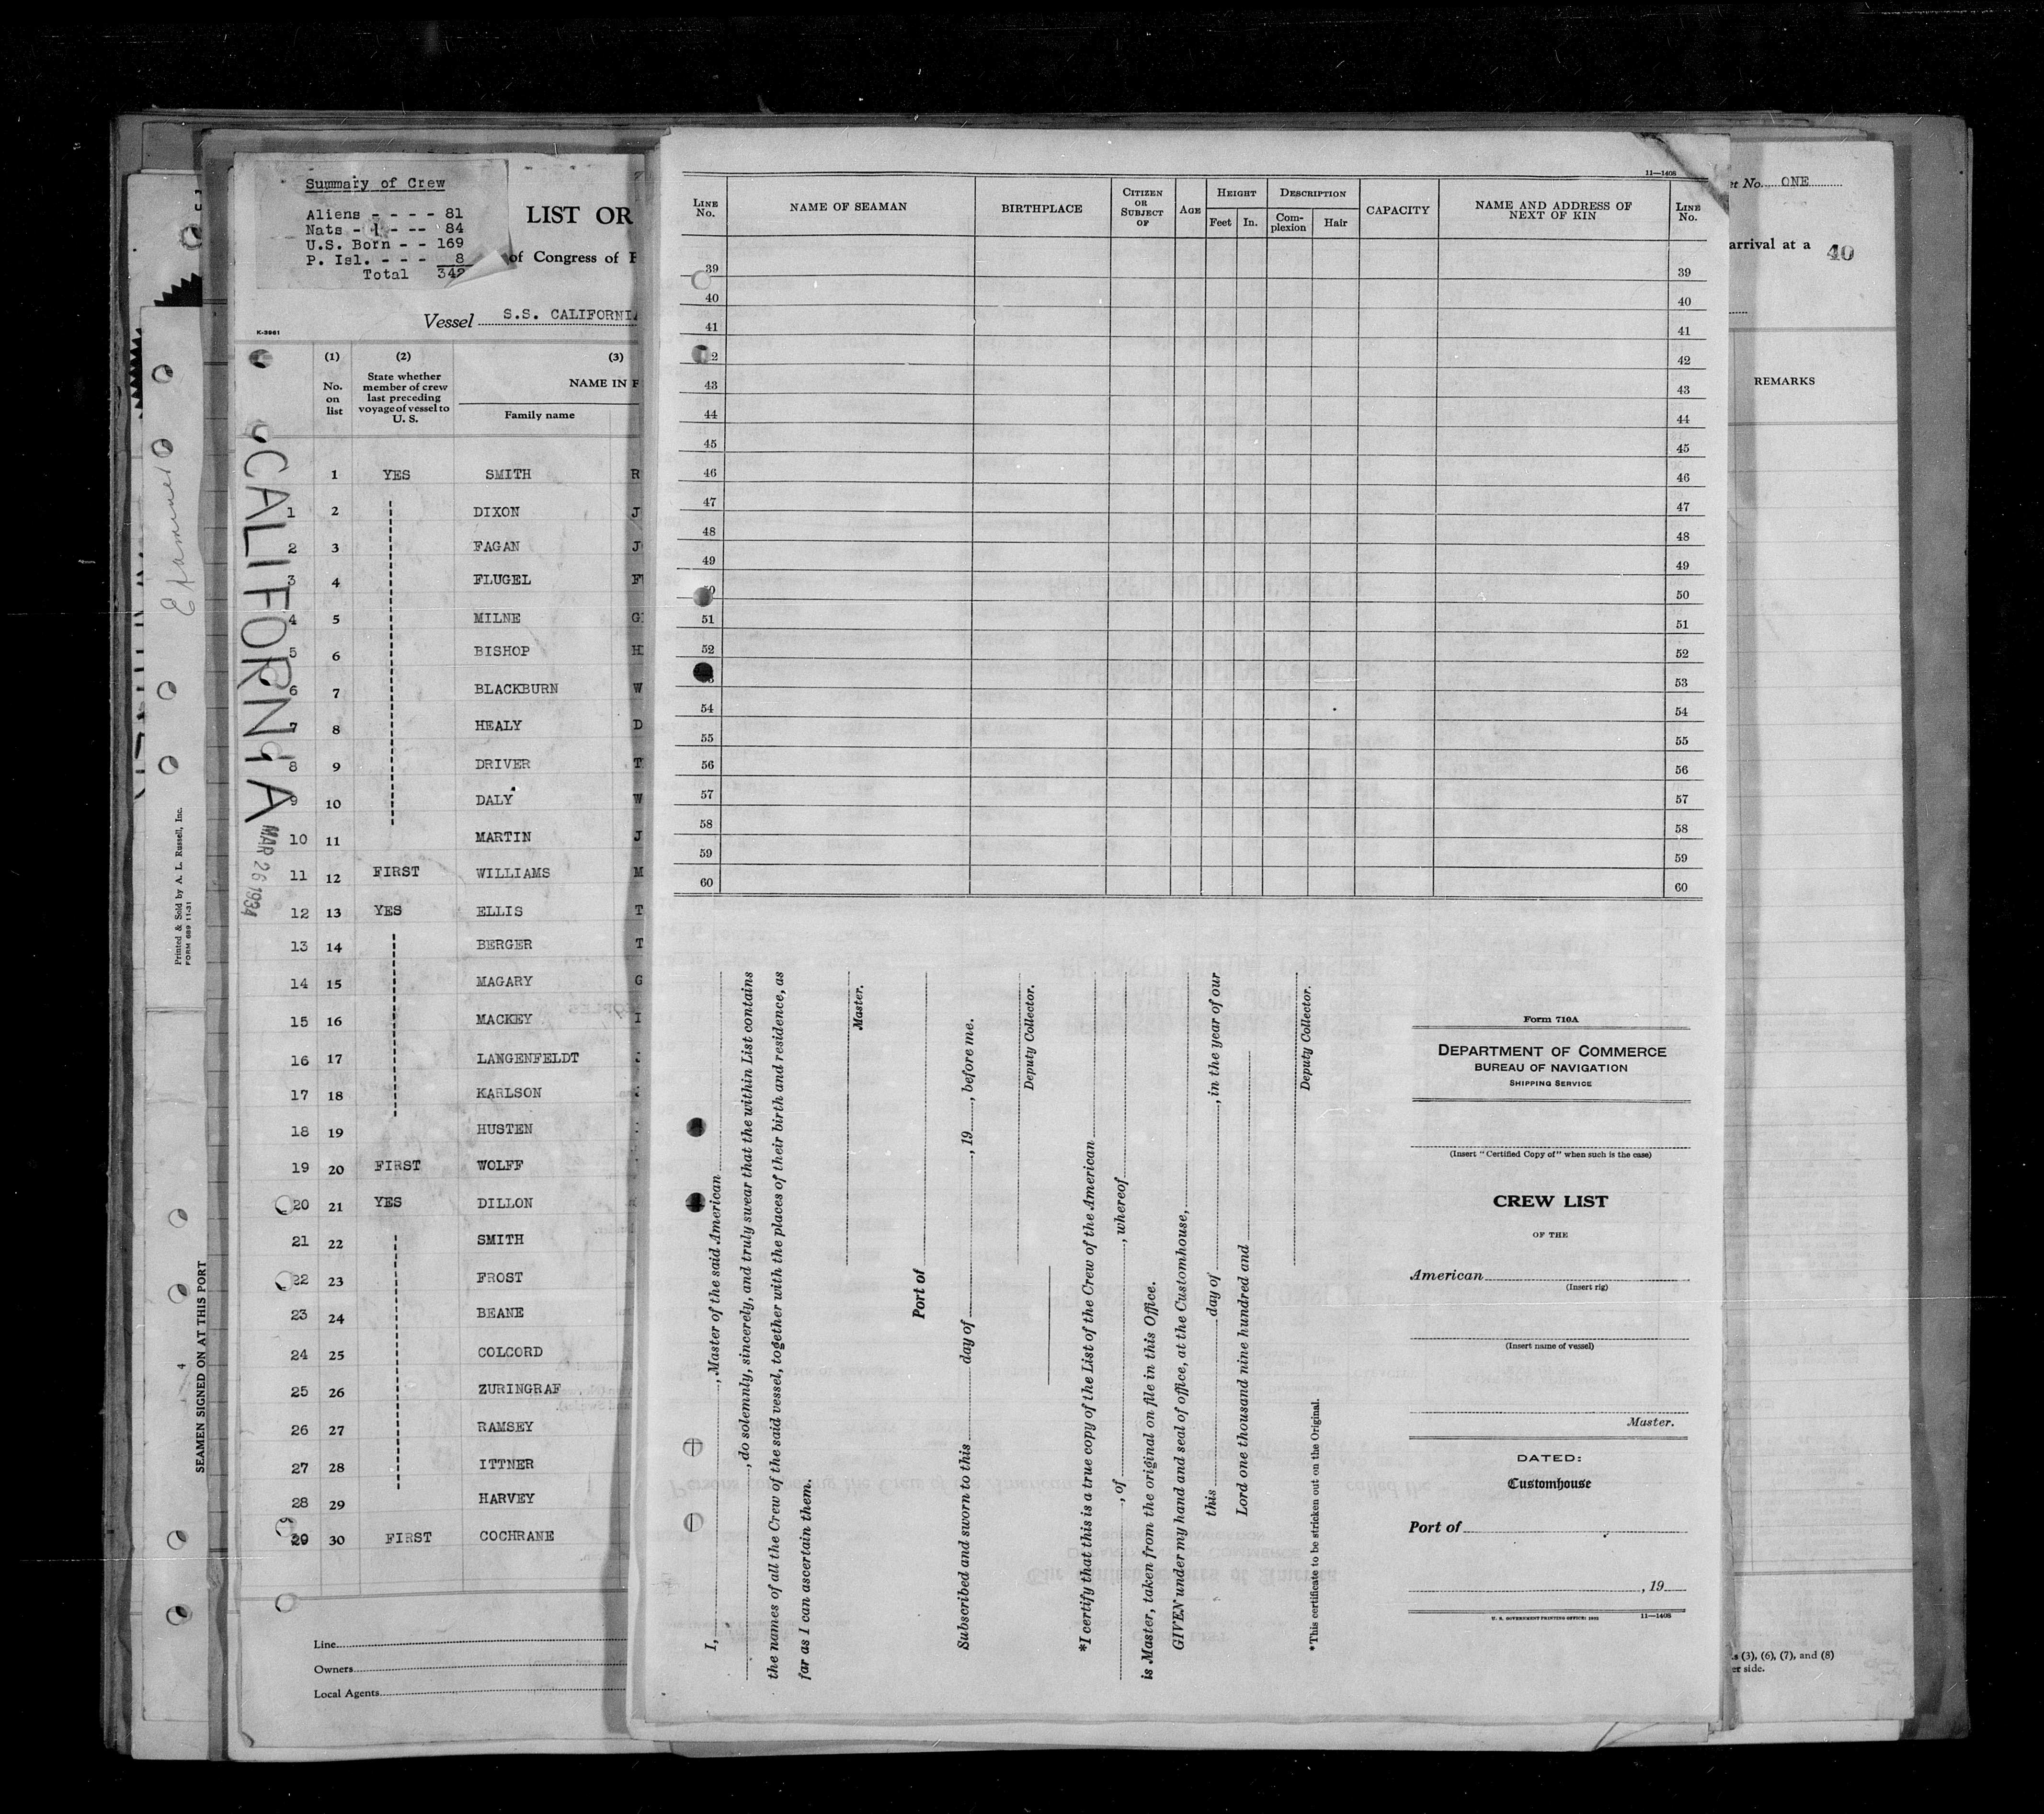 Summary of Crew
Aliens - - - - 81
Nats - - -- 84
U.S. Born - - 169
P. Isl. - - - 8
Total 342
LIST OR
of Congress of
Vessel S.S. CALIFORNIA
K-3981
(1) (2) (3)
No. on list
State whether member of crew last preceding voyage of vessel to U. S.
NAME IN F
Family name
CALIFORNIA
MAR 26 1934
1 YES SMITH R
1 2 DIXON J
2 3 FAGAN J
3 4 FLUGEL F
4 5 MILNE G
5 6 BISHOP H
6 7 BLACKBURN W
7 8 HEALY D
8 9 DRIVER T
9 10 DALY W
10 11 MARTIN J
11 12 FIRST WILLIAMS M
12 13 YES ELLIS T
13 14 BERGER T
14 15 MAGARY G
15 16 MACKEY I
16 17 LANGENFELDT
17 18 KARLSON
18 19 HUSTEN
19 20 FIRST WOLFF
20 21 YES DILLON
21 22 SMITH
22 23 FROST
23 24 BEANE
24 25 COLCORD
25 26 ZURINGRAF
26 27 RAMSEY
27 28 ITTNER
28 29 HARVEY
29 30 FIRST COCHRANE
Line
Owners
Local Agents
Examined
Printed & Sold by A. L. Russell, Inc.
FORM 689 11-31
4
SEAMEN SIGNED ON AT THIS PORT
11—1408
LINE No.
NAME OF SEAMAN
BIRTHPLACE
CITIZEN OR SUBJECT OF
AGE
HEIGHT
Feet In.
DESCRIPTION
Complexion Hair
CAPACITY
NAME AND ADDRESS OF NEXT OF KIN
LINE No.
39 39
40 40
41 41
42
43 43
44 44
45 45
46 46
47 47
48 48
49 49
50
51 51
52 52
53
54 54
55 55
56 56
57 57
58 58
59 59
60 60
I, , Master of the said American
, do solemnly, sincerely, and truly swear that the within List contains
the names of all the Crew of the said vessel, together with the places of their birth and residence, as
far as I can ascertain them.
Master.
Port of
Subscribed and sworn to this day of , 19 , before me.
Deputy Collector.
*I certify that this is a true copy of the List of the Crew of the American
, of , whereof
is Master, taken from the original on file in this Office.
GIVEN under my hand and seal of office, at the Customhouse,
this day of , in the year of our
Lord one thousand nine hundred and
Deputy Collector.
*This certificate to be stricken out on the Original.
Form 710A
DEPARTMENT OF COMMERCE
BUREAU OF NAVIGATION
SHIPPING SERVICE
(Insert "Certified Copy of" when such is the case)
CREW LIST
OF THE
American
(Insert rig)
(Insert name of vessel)
Master.
DATED:
Customhouse
Port of
, 19
U. S. GOVERNMENT PRINTING OFFICE: 11—1408
et No. ONE
arrival at a 40
REMARKS
s (3), (6), (7), and (8)
er side.